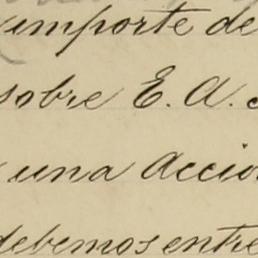 importe de
sobre E. A.
una accio
debemos entre